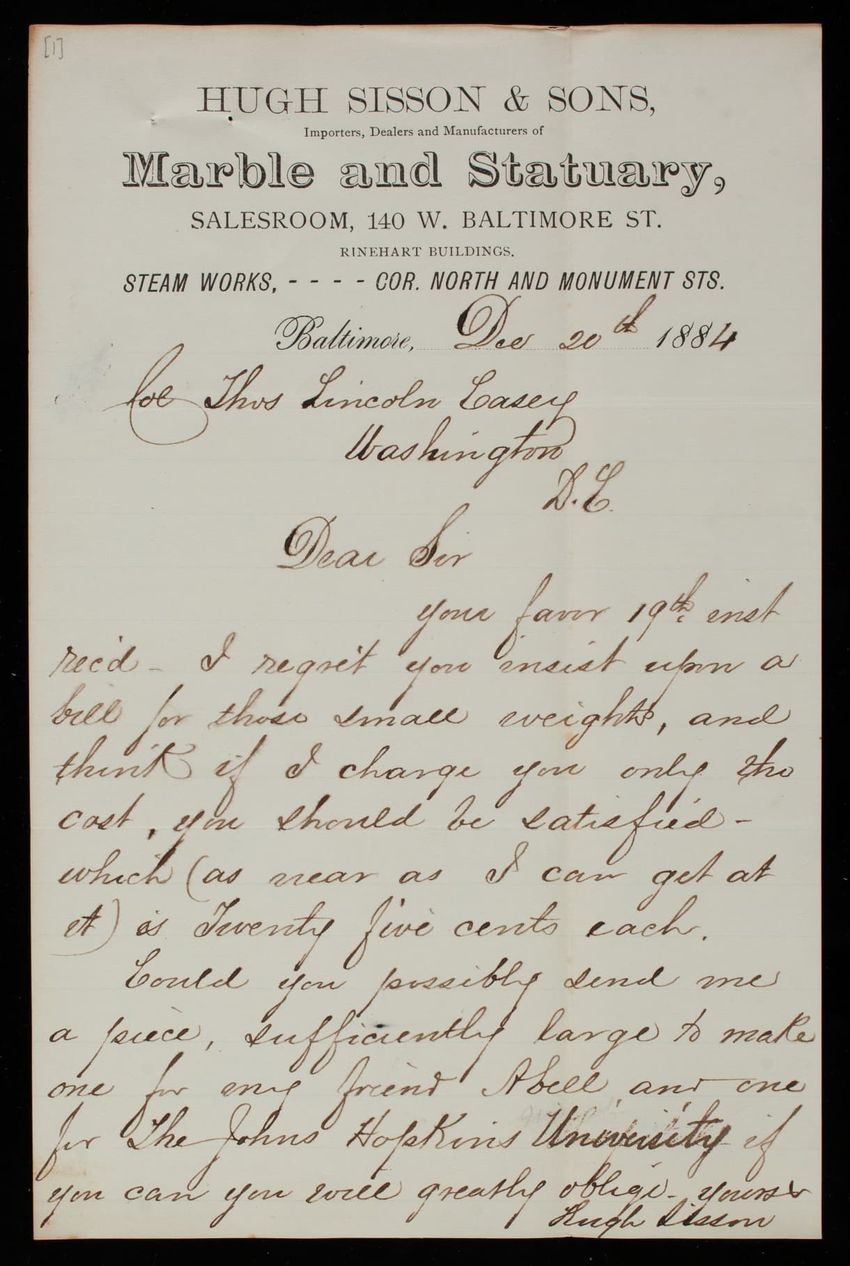 [1]
HUGH SISSON & SONS,
Importers, Dealers and Manufacturers of
Marble and Statuary,
SALESROOM, 140 W. BALTIMORE ST.
RINEHART BUILDINGS.
STEAM WORKS, - - - - COR. NORTH AND MONUMENT STS.
Baltimore, Dec 20th 1884
Col Thos Lincoln Casey
Washington
D.C.
Dear Sir
your favor 19th inst
rec'd - I regret you insist upon a
bill for those small weights, and
think if I charge you only the
cost, you should be satisfied -
which (as near as I can get at
it) is Twenty five cents each.
Could you possibly send me
a piece, sufficiently large to make
one for my friend Abell and one
for The Johns Hopkins University if
you can you will greatly oblige - yours
Hugh Sisson